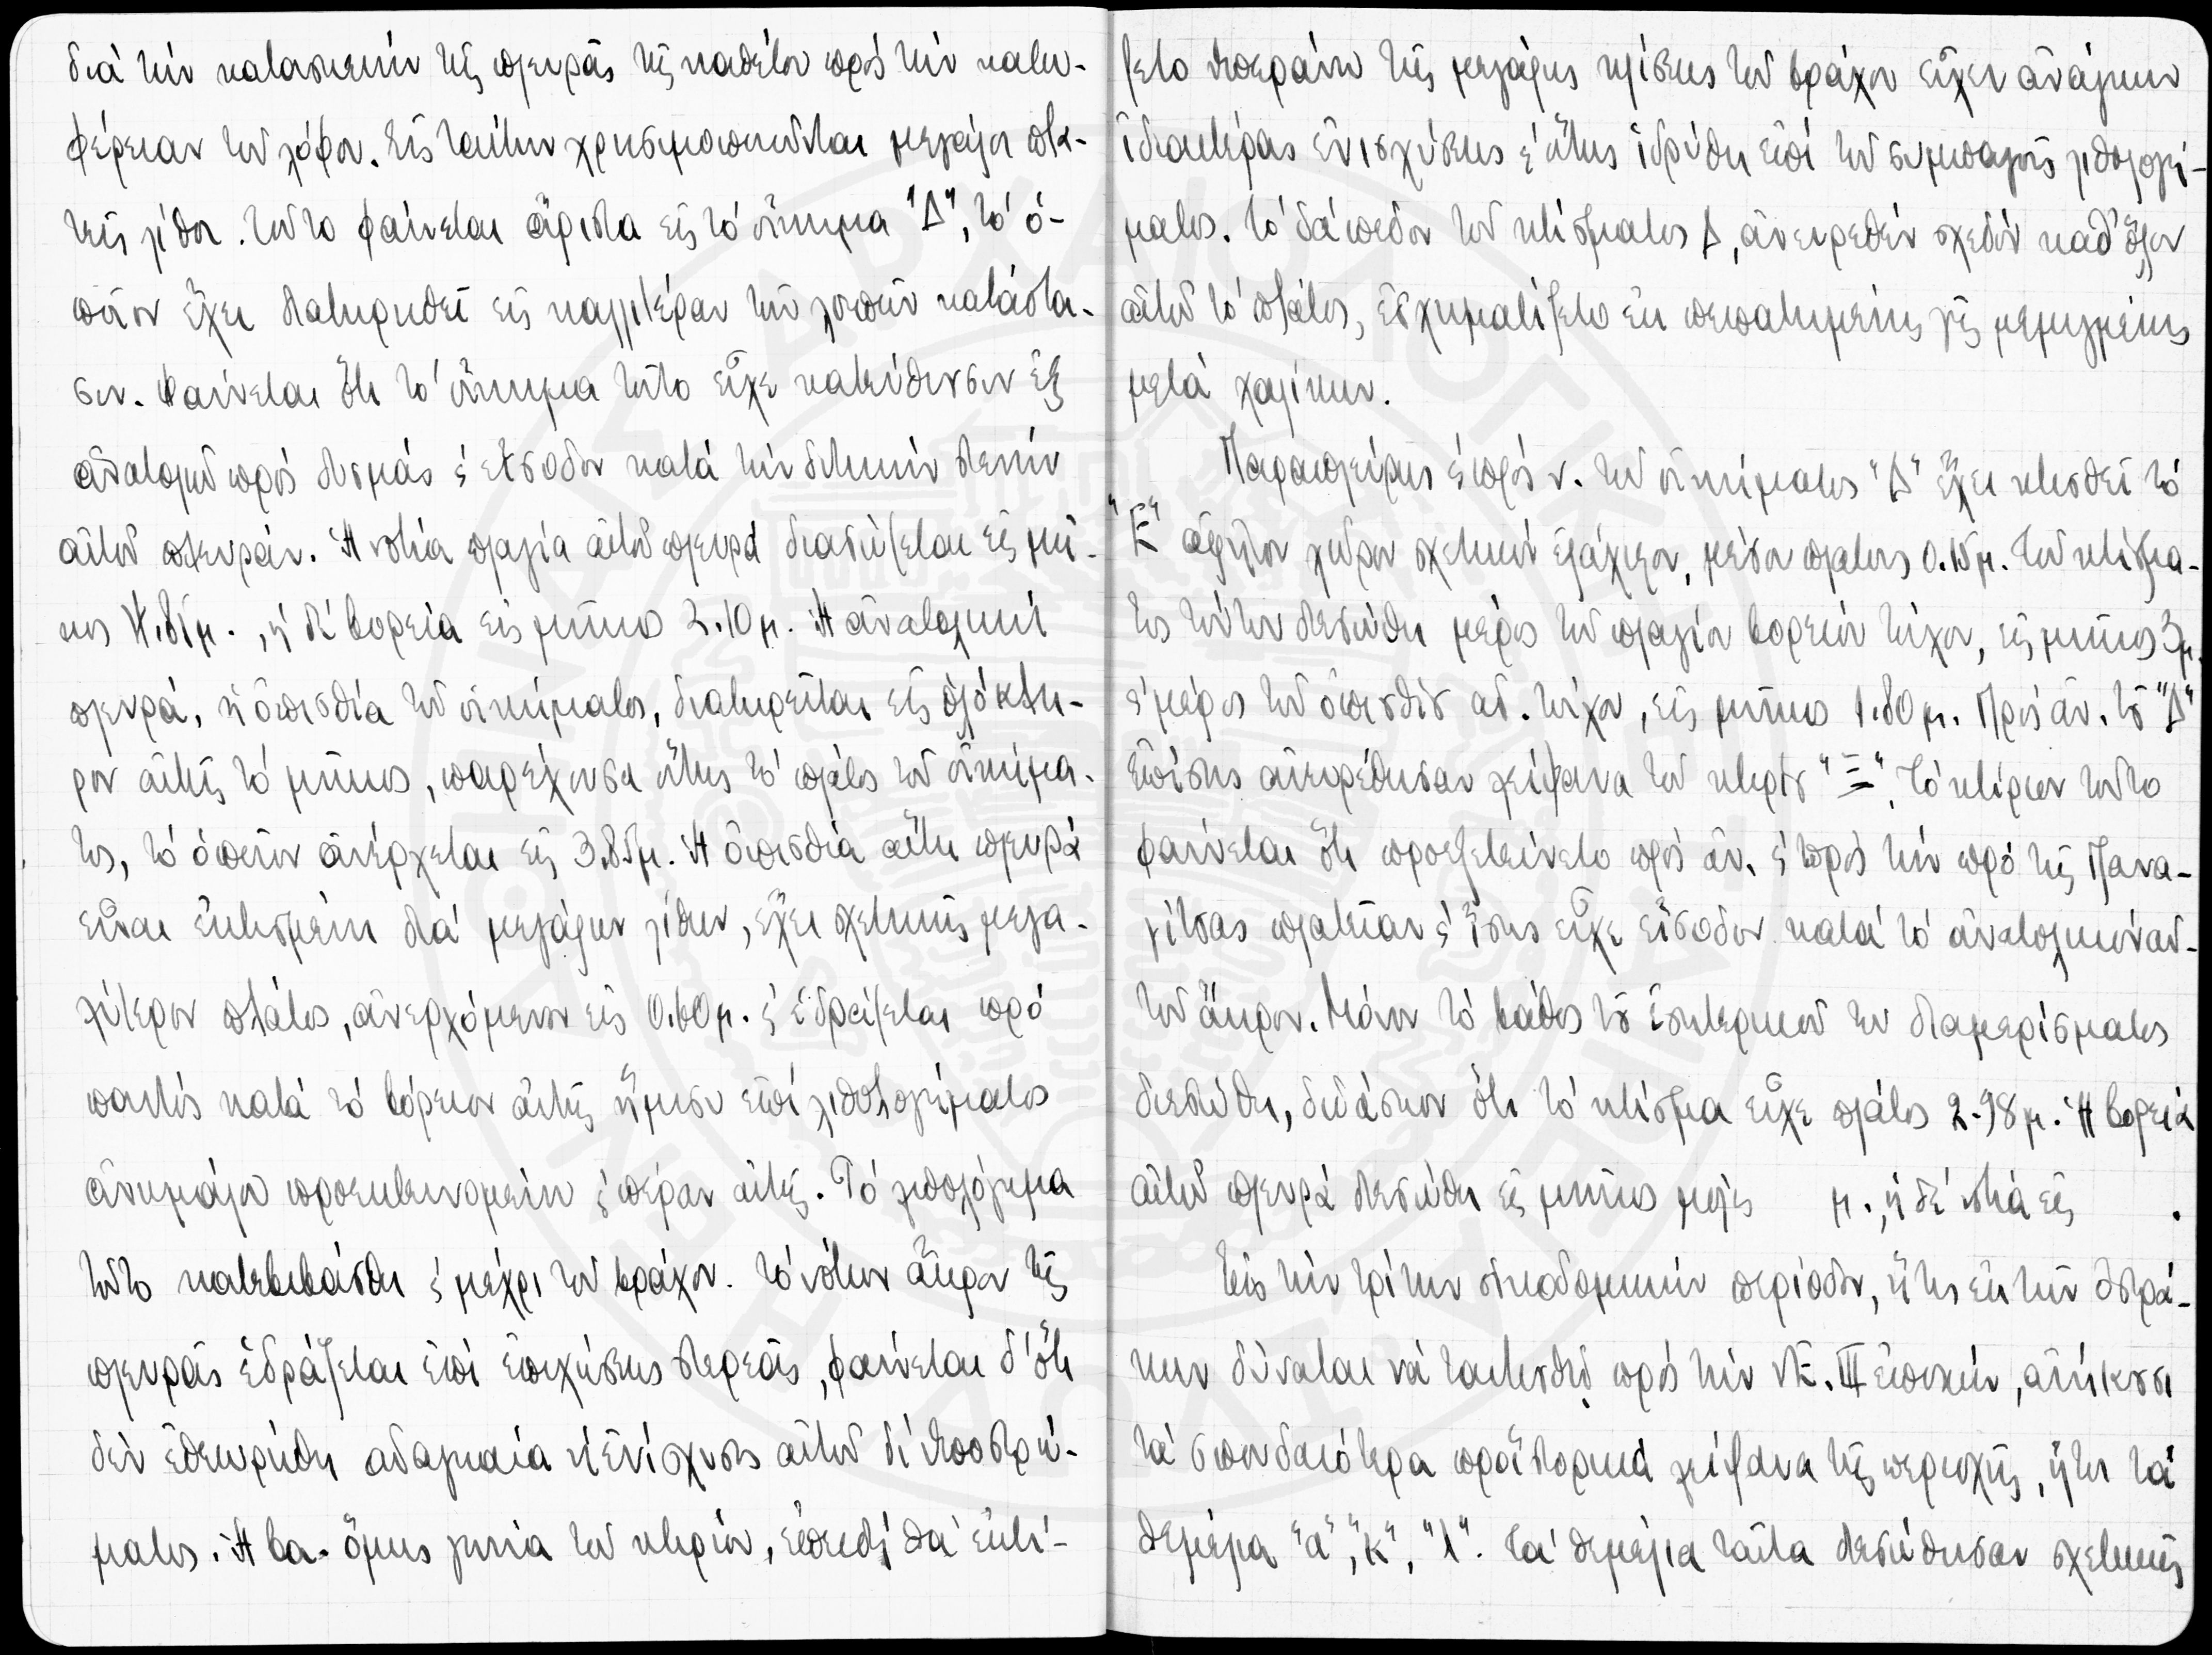 διά τήν κατασκευήν τῆς πλευρᾶς τῆς καθέτου πρός τήν κατω-
φέρειαν τοῦ λόφου. Εἰς ταύτην χρησιμοποιοῦνται μεγάλοι πλα-
τεῖς λίθοι. Τοῦτο φαίνεται ἄριστα εἰς τό οἴκημα "Δ", τό ὁ-
ποῖον ἔχει διατηρηθεῖ εἰς καλλιτέραν τῶν λοιπῶν κατάστα-
σιν. Φαίνεται ὅτι τό οἴκημα τοῦτο εἶχε κατεύθυνσιν ἐξ
ἀνατολῶν πρός δυσμάς ϛ εἴσοδον κατά τήν δυτικήν στενήν
αὐτοῦ πλευράν. Ἡ νοτία πλαγία αὐτοῦ πλευρά διασώζεται εἰς μῆ-
κος μ., ἡ δέ βορεία εἰς μῆκος 2.10 μ. Ἡ ἀνατολική
πλευρά, ἡ ὀπισθία τοῦ οἰκήματος, διατηρεῖται εἰς ὁλόκλη-
ρον αὐτῆς τό μῆκος, παρέχουσα οὕτως τό πλάτος τοῦ οἰκήμα-
τος, τό ὁποῖον ἀνέρχεται εἰς 3.85μ. Ἡ ὀπισθία αὕτη πλευρά
εἶναι ἐκτισμένη διά μεγάλων λίθων, ἔχει σχετικῶς μεγα-
λύτερον πλάτος, ἀνερχόμενον εἰς 0.60μ. ϛ ἑδράζεται πρό
παντός κατά τό βόρειον αὐτῆς ἥμισυ ἐπί λιθολογήματος
ἀνωμάλου προεκτεινομένου ϛ πέραν αὐτῆς. Τό λιθολόγημα
τοῦτο κατεβιβάσθη ϛ μέχρι τοῦ βράχου. Τό νότιον ἄκρον τῆς
πλευρᾶς ἑδράζεται ἐπί ἐπιχώσεως στερεᾶς, φαίνεται δ' ὅτι
δέν ἐθεωρήθη ἀναγκαία ἡ ἐνίσχυσις αὐτοῦ δι' ὑποστρώ-
ματος. Ἡ βα. ὅμως γωνία τοῦ κτιρίου, ἐπειδή θά ἐκτί-
ζετο ὑπεράνω τῆς μεγάλης κλίσεως τοῦ βράχου εἶχεν ἀνάγκην
ἰδιαιτέρας ἐνισχύσεως ϛ οὕτως ἱδρύθη ἐπί τοῦ συμπαγοῦς λιθολογή-
ματος. Τό δάπεδον τοῦ κτίσματος Δ, ἀνευρεθέν σχεδόν καθ' ὅλον
αὐτοῦ τό πλάτος, ἐσχηματίζετο ἐκ πεπατημένης γῆς μεμιγμένης
μετά χαλίκων.
Παραπλεύρως ϛ πρός ν. τοῦ οἰκήματος "Δ" ἔχει κτισθεῖ τό
"Ε" ἀφῆλον χῶρον σχετικῶν ἐλάχιστον, μέσου πλάτους 0.15μ. Τοῦ κτίσμα-
τος τούτου διεσώθη μέρος τοῦ πλαγίου βορείου τοίχου, εἰς μῆκος 3μ.
ϛ μέρος τοῦ ὀπισθίου ἀν. τοίχου, εἰς μῆκος 1.80μ. Πρός ἀν. τοῦ "Δ"
ἐπίσης ἀνευρέθησαν λείψανα τοῦ κτιρίου "Ξ". Τό κτίριον τοῦτο
φαίνεται ὅτι προεξετείνετο πρός ἀν. ϛ πρός τήν πρό τῆς Πανα-
γίτσας πλατεῖαν ϛ ἴσως εἶχε εἴσοδον κατά τό ἀνατολικόν αὐ-
τοῦ ἄκρον. Μόνον τό βάθος τοῦ ἐσωτερικοῦ του διαμερίσματος
διεσώθη, διδάσκον ὅτι τό κτίσμα εἶχε πλάτος 2.98μ. Ἡ βορεία
αὐτοῦ πλευρά διεσώθη εἰς μῆκος μόλις μ., ἡ δέ νοτία εἰς .
Εἰς τήν τρίτην οἰκοδομικήν περίοδον, ἥτις ἐκ τῶν ὀστρά-
κων δύναται νά ταυτισθῇ πρός τήν ΥΕ. III ἐποχήν, ἀνήκουσι
τά σπουδαιότερα προϊστορικά λείψανα τῆς περιοχῆς, ἤτοι τά
θεμέλια "α", "κ", "λ". Τά θεμέλια ταῦτα διεσώθησαν σχετικῶς